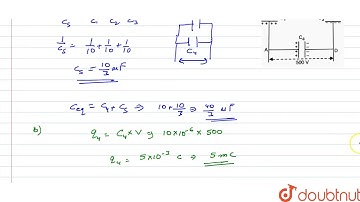 Cs C C2 C3
1/Cs = 1/10 + 1/10 + 1/10
Cs = 10/3 μF
C4
C4
A
D
500 V
Ceq = C4 + Cs ⇒ 10 + 10/3 ⇒ 40/3 μF
b)
q4 = C4 × V ⇒ 10×10⁻⁶ × 500
q4 = 5×10⁻³ C ⇒ 5 mC
doubtnut